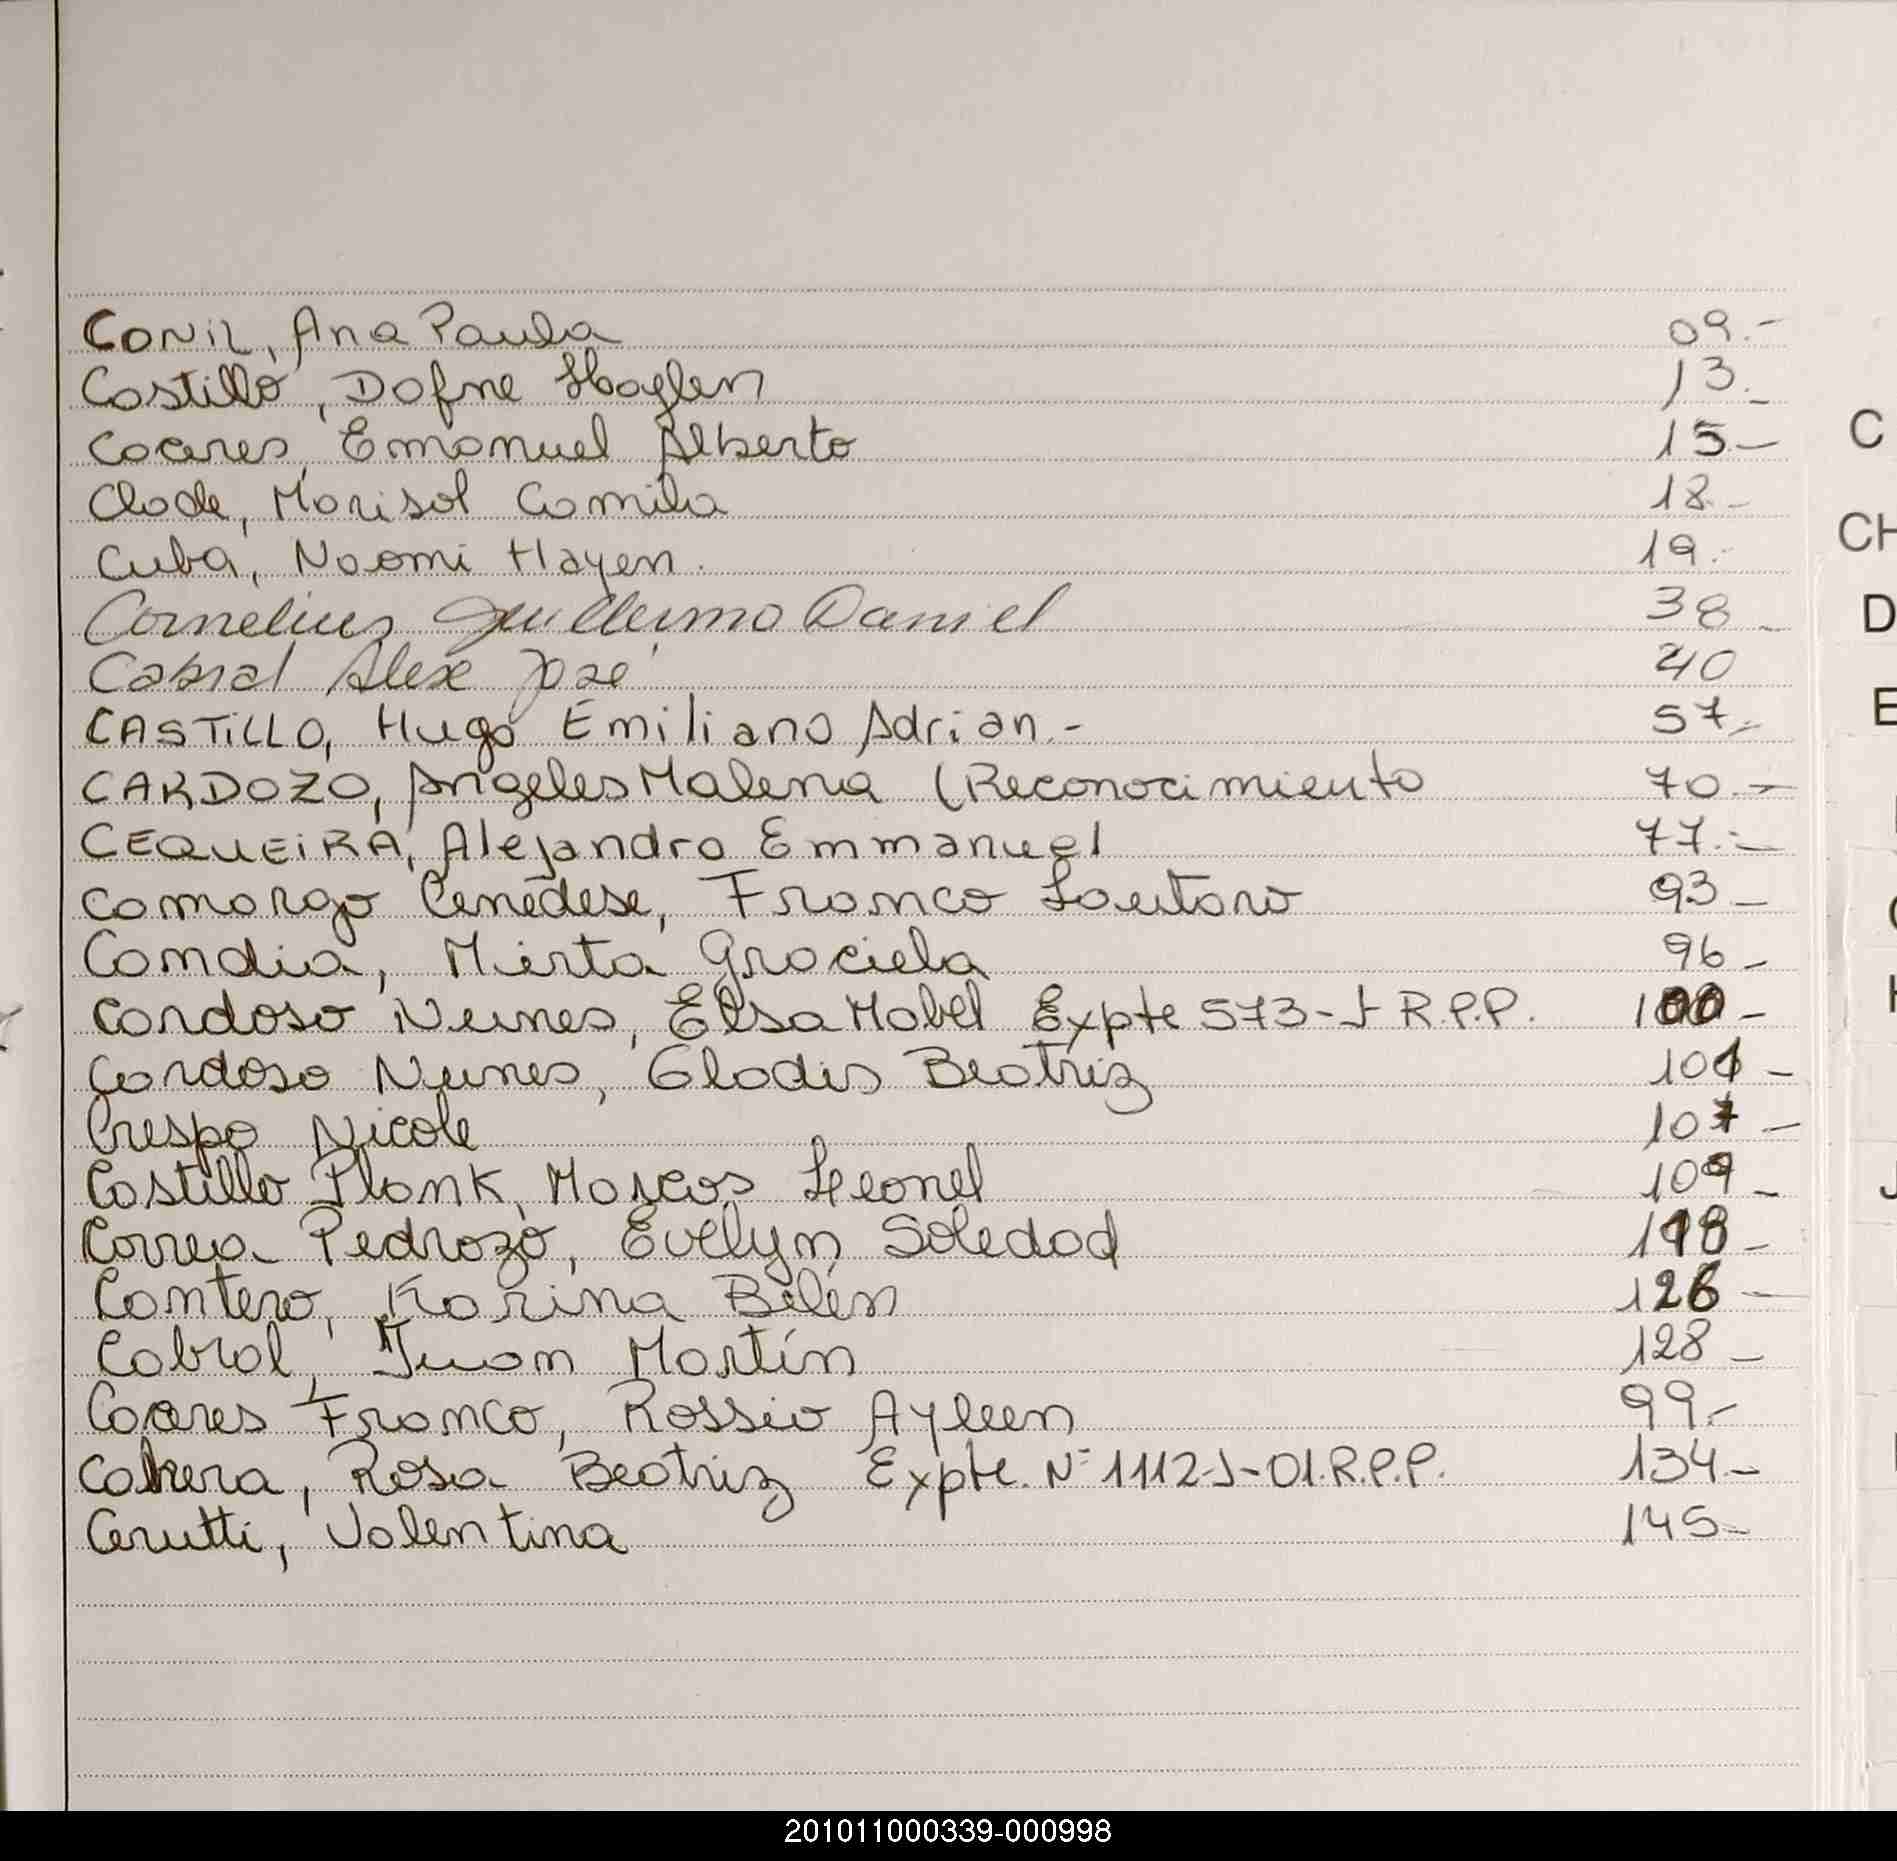 CONIL, Ana Paula 09.-
Castillo, Dafne Haylen 13.-
Coares, Emanuel Alberto 15.-
Clode, Marisol Camila 18.-
C
Cuba, Naomi Hayen. 19.-
CH
Cornelius Guillermo Daniel 38 -
D
Cabral Alex José 40
CASTILLO, Hugo Emiliano Adrian.- 57.-
E
CARDOZO, Angeles Malena (Reconocimiento 70.-
CEQUEIRA, Alejandro Emmanuel 77.-
Camargo Cenedese, Franco Lautaro 93 -
Candia, Mirta Graciela 96 -
Cardoso Nunes, Elsa Mabel Expte 573-J R.P.P. 100 -
Cardoso Nunes, Gladis Beatriz 101 -
Crespo Nicole 107 -
Castillo Plank, Marcos Leonel 109 -
J
Correa Pedrozo, Evelyn Soledad 118 -
Cantero, Karina Belén 126 -
Cabral, Juan Martín 128 -
Coares Franco, Rossio Ayleen 99.-
Cabrera, Rosa Beatriz Expte. Nº 1112-J-01.R.P.P. 134.-
Cerutti, Valentina 145-
201011000339-000998